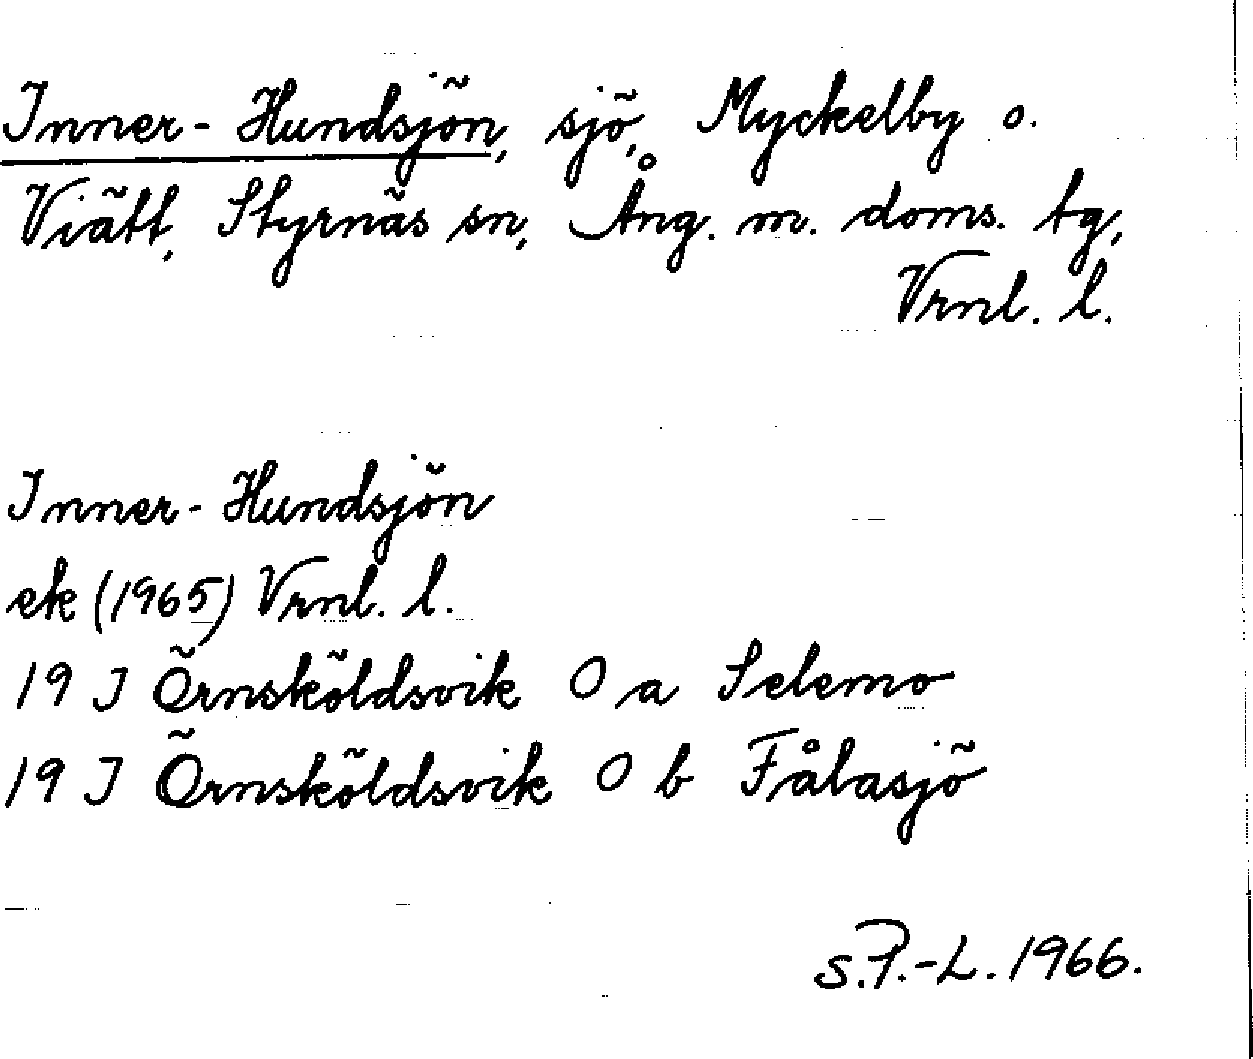 Inner-Hundsjön, sjö, Myckelby o.
Viätt, Styrnäs sn, Ång. m. doms. tg,
Vrnl. l.
Inner-Hundsjön
ek (1965) Vrnl. l.
19 J Örnsköldsvik O a Selemo
19 J Örnsköldsvik O b Fålasjö
S.P.-L. 1966.